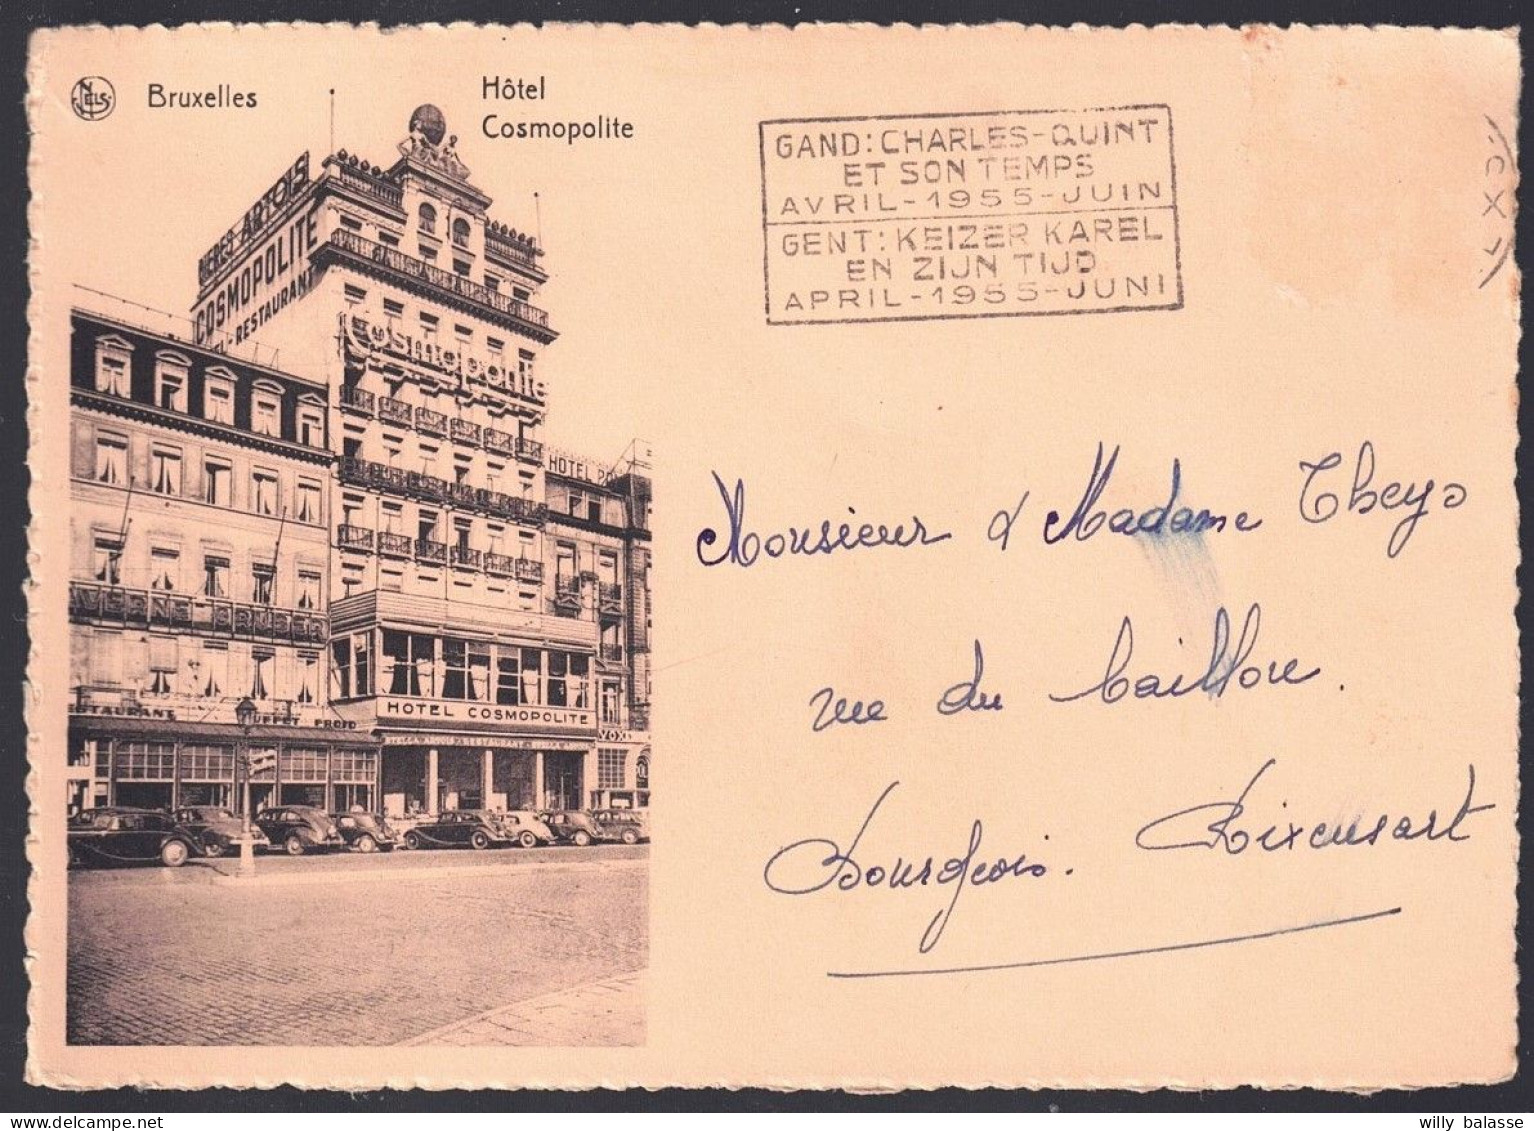 NELS
Bruxelles
Hôtel
Cosmopolite
GAND: CHARLES-QUINT
ET SON TEMPS
AVRIL-1955-JUIN
GENT: KEIZER KAREL
EN ZIJN TIJD
APRIL-1955-JUNI
BIERES ARTOIS
COSMOPOLITE
RESTAURANT
Cosmopolite
HOTEL
TAVERNE GRUBER
RESTAURANT
BUFFET FROID
HOTEL COSMOPOLITE
VOX
Monsieur & Madame Theys
rue du Caillou.
Bourgeois. Rixensart
willy balasse